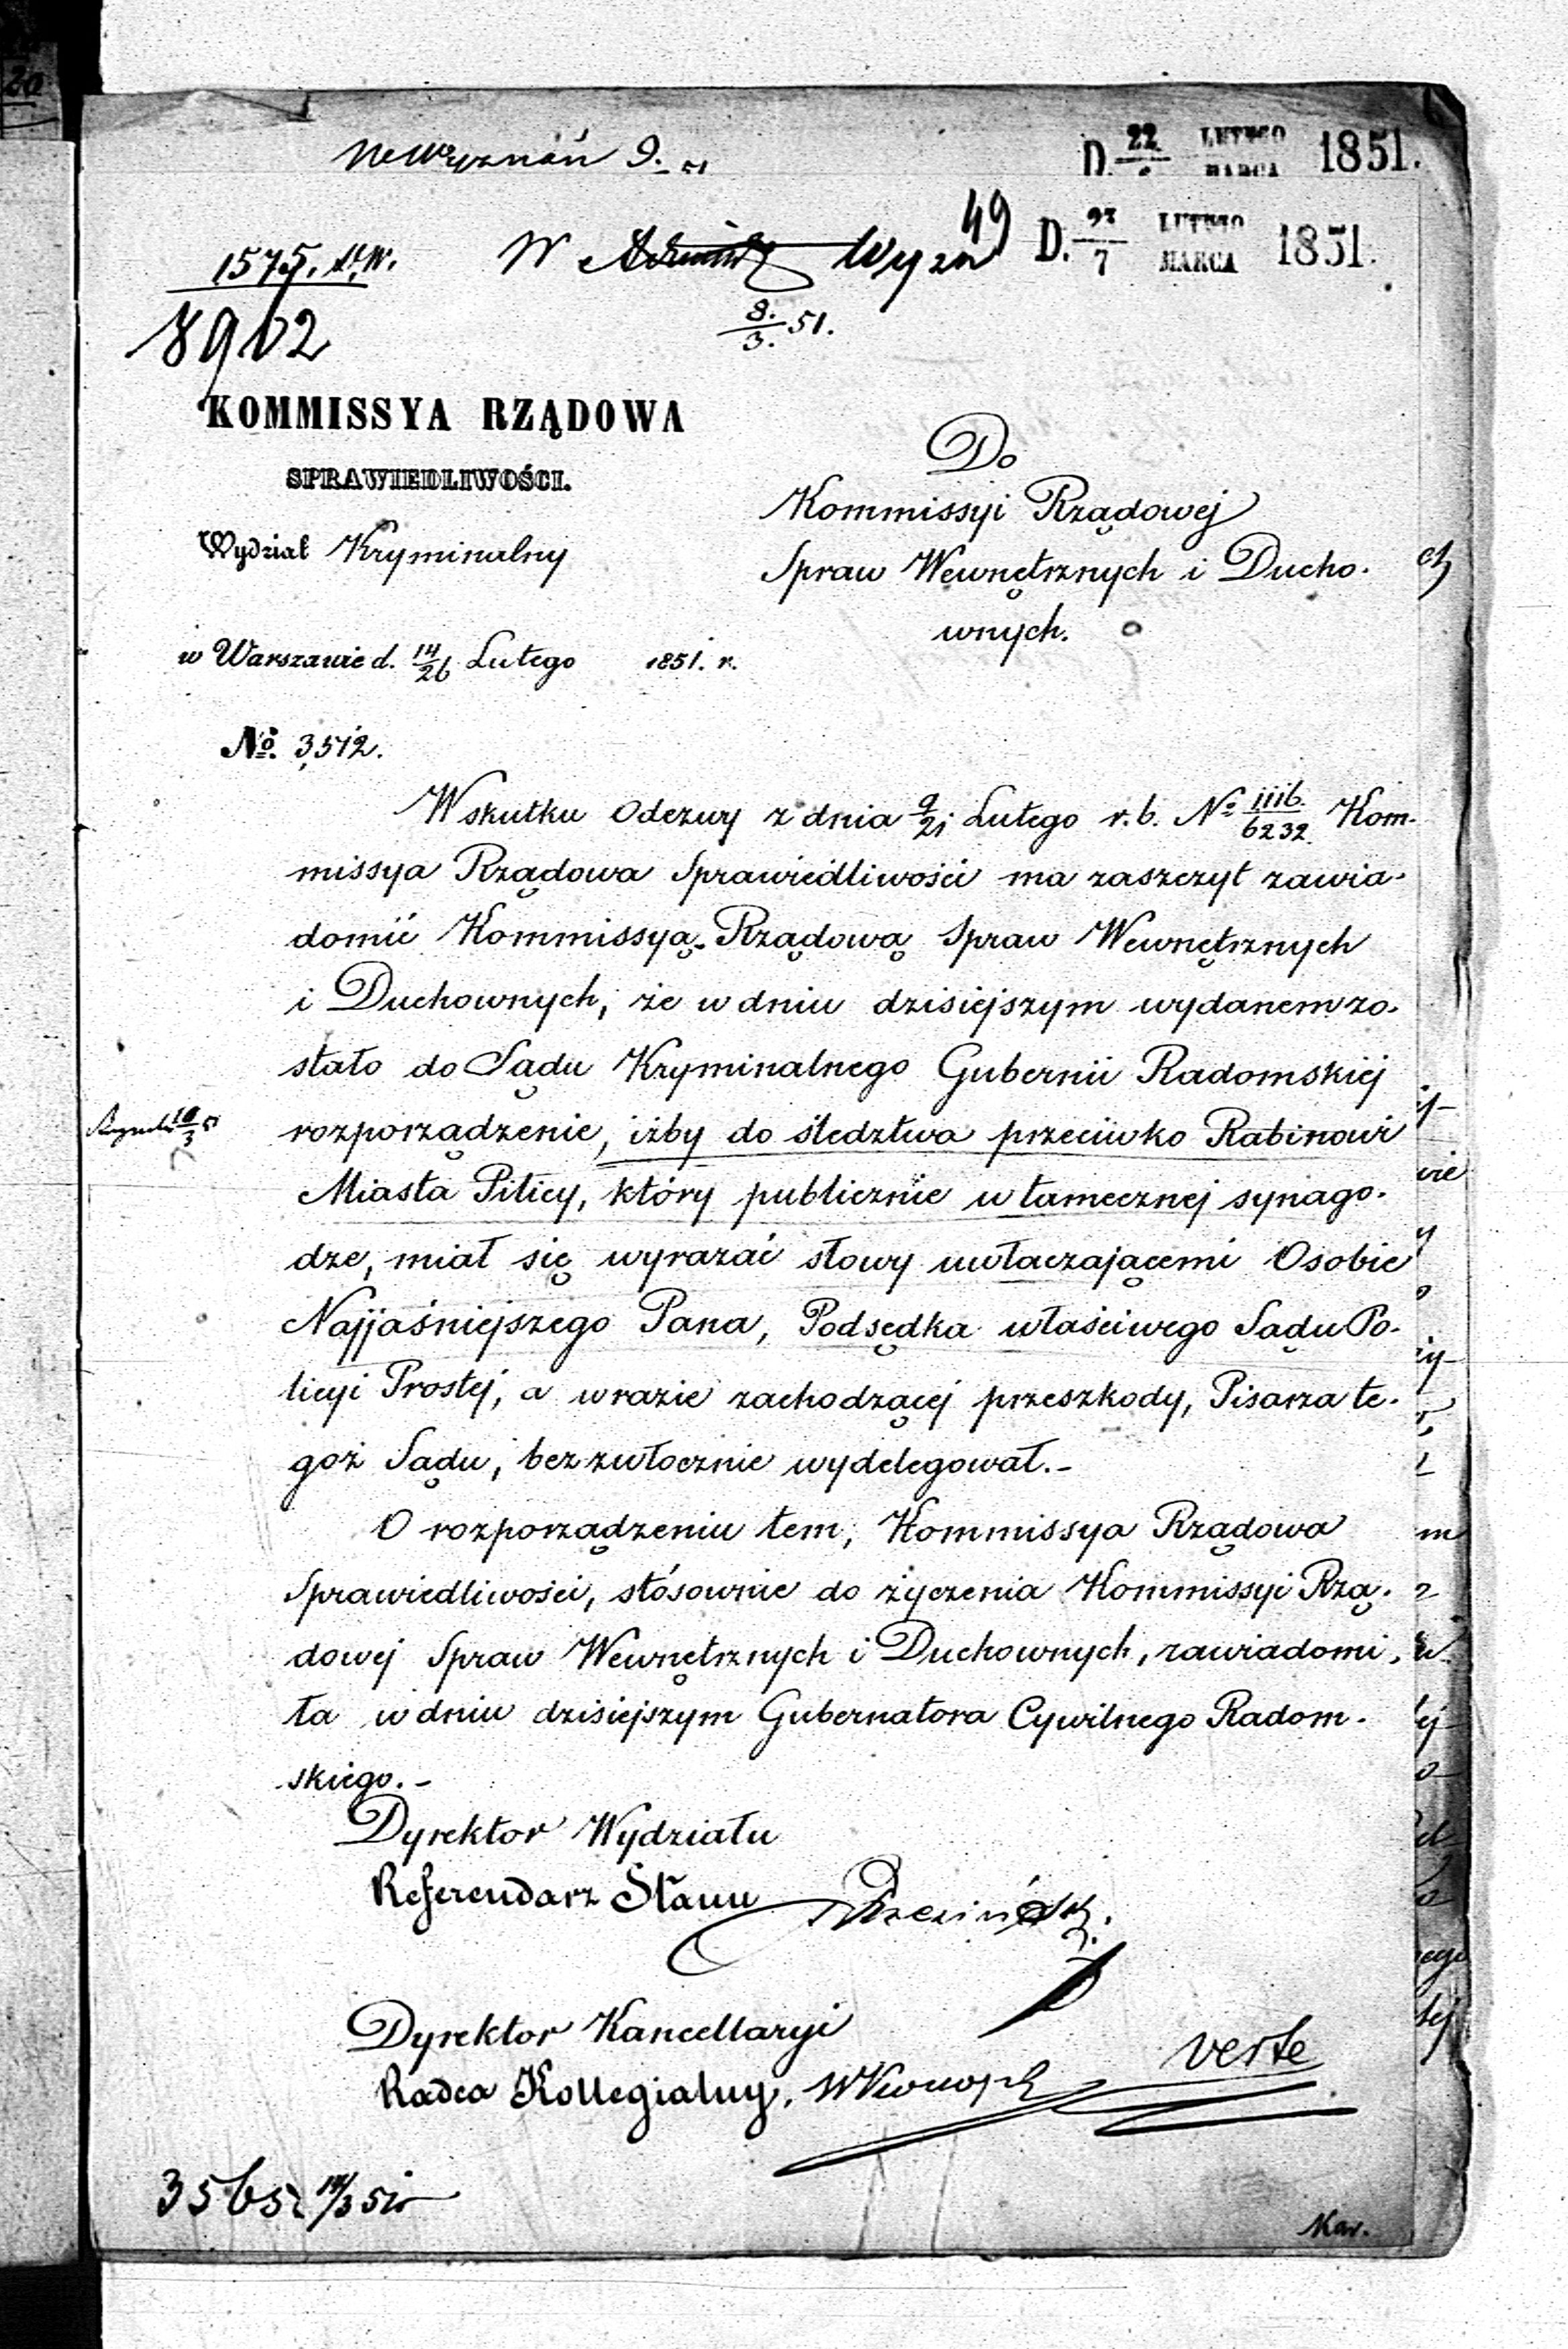 D. 22 LUTEGO MARCA 1851.
49
D. 23/7 LUTEGO MARCA 1851.
1575.
W Wyzn
8./3. 51.
8902
KOMMISSYA RZĄDOWA
SPRAWIEDLIWOŚCI.
Wydział Kryminalny
w Warszawie d. 14/26 Lutego 1851. r.
No. 3,512.
Do
Kommissyi Rządowej
Spraw Wewnętrznych i Ducho-
wnych.
Wskutku Odezwy z dnia 9/21 Lutego r. b. No 1116./6232. Kom-
missya Rządowa Sprawiedliwości ma zaszczyt zawia-
domić Kommissyą Rządową Spraw Wewnętrznych
i Duchownych, że w dniu dzisiejszym wydanem zo-
stało do Sądu Kryminalnego Gubernii Radomskiej
rozporządzenie, iżby do śledztwa przeciwko Rabinowi
Miasta Pilicy, który publicznie w tamecznej synago-
dze, miał się wyrazać słowy uwłaczającemi Osobie
Najjaśniejszego Pana, Podsędka właściwego Sądu Po-
licyi Prostej, a w razie zachodzącej przeszkody, Pisarza te-
goż Sądu, bezzwłocznie wydelegował.-
O rozporządzeniu tem, Kommissya Rządowa
Sprawiedliwości, stósownie do życzenia Kommissyi Rzą-
dowej Spraw Wewnętrznych i Duchownych, zawiadomi-
ła w dniu dzisiejszym Gubernatora Cywilnego Radom-
skiego.-
Dyrektor Wydziału
Referendarz Stanu
Dyrektor Kancellaryi
Radca Kollegialny,
verte